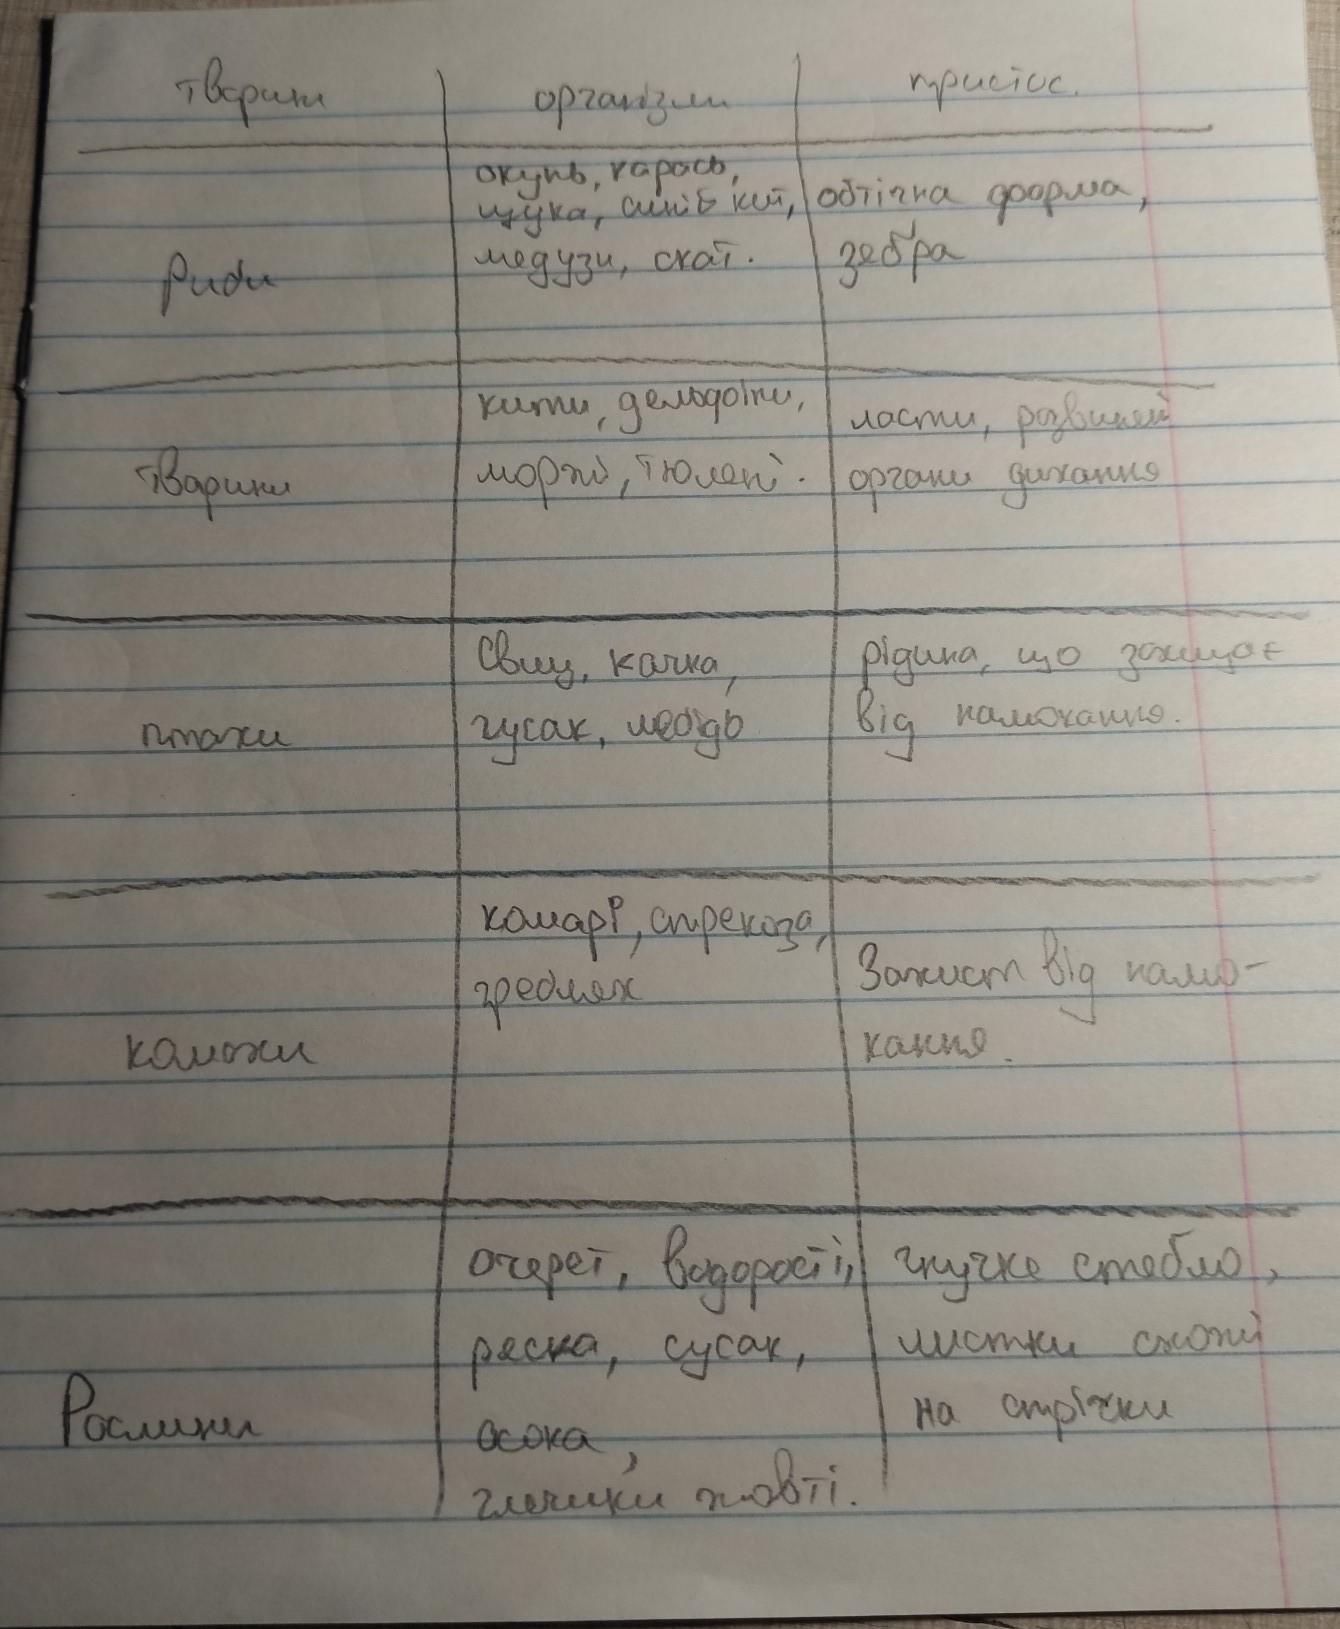 тварини організми присtос.
окунь, карась,
щука, синій кит, обтічна форма,
медузи, скат. зебра
Риби
кити, дельфіни, ласти, розвинені
тварини моржі, тюлені. органи дихання
Свищ, качка, рідина, що захищає
птахи гусак, лебідь від намокання.
комарі, стрекоза,
гребляк Захист від намо-
комахи кання.
очерет, водорості, гнучке стебло,
ряска, сусак, листки схожі
Рослини осока, на стрічки
глечики жовті.